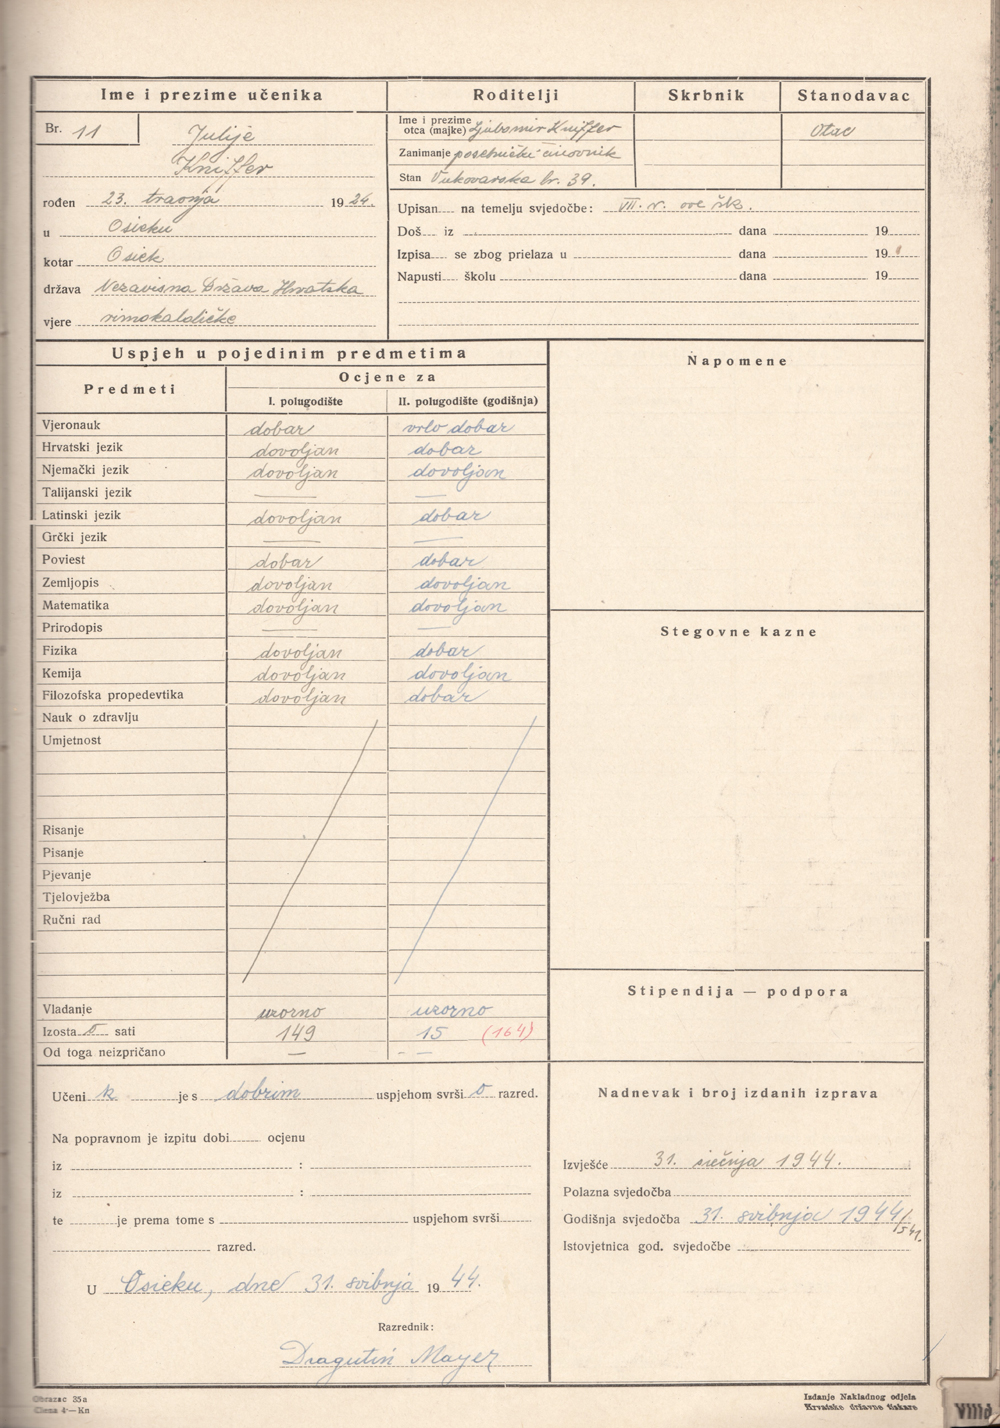 Ime i prezime učenika
Roditelji
Skrbnik
Stanodavac
Br. 11
Julije
Kniffer
rođen 23. travnja 1924.
u Osieku
kotar Osiek
država Nezavisna Država Hrvatska
vjere rimokatoličke
Ime i prezime
otca (majke) Ljubomir Kniffer
otac
Zanimanje posebnički činovnik
Stan Vukovarska br. 39.
Upisan na temelju svjedočbe: VII. r. ove šk.
Doš iz dana 19
Izpisa se zbog prielaza u dana 19
Napusti školu dana 19
Uspjeh u pojedinim predmetima
Predmeti
Ocjene za
I. polugodište
II. polugodište (godišnja)
Vjeronauk dobar vrlo dobar
Hrvatski jezik dovoljan dobar
Njemački jezik dovoljan dovoljan
Talijanski jezik — —
Latinski jezik dovoljan dobar
Grčki jezik — —
Poviest dobar dobar
Zemljopis dovoljan dovoljan
Matematika dovoljan dovoljan
Prirodopis — —
Fizika dovoljan dobar
Kemija dovoljan dovoljan
Filozofska propedevtika dovoljan dobar
Nauk o zdravlju
Umjetnost
Risanje
Pisanje
Pjevanje
Tjelovježba
Ručni rad
Vladanje uzorno uzorno
Izosta o sati 149 15 (164)
Od toga neizpričano — — —
Napomene
Stegovne kazne
Stipendija — podpora
Učeni k je s dobrim uspjehom svrši o razred.
Na popravnom je izpitu dobi ocjenu
iz :
iz :
te je prema tome s uspjehom svrši
razred.
U Osieku, dne 31. svibnja 1944.
Razrednik:
Dragutin Mayer
Nadnevak i broj izdanih izprava
Izvješće 31. siečnja 1944.
Polazna svjedočba
Godišnja svjedočba 31. svibnja 1944/
541.
Istovjetnica god. svjedočbe
Obrazac 35a
Ciena 4·—Kn
Izdanje Nakladnog odjela
Hrvatske državne tiskare
VIIId